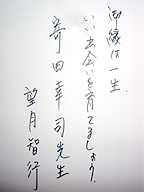 御縁は一生、
いい出会いを育てましょう。
寄田幸司先生
望月智行